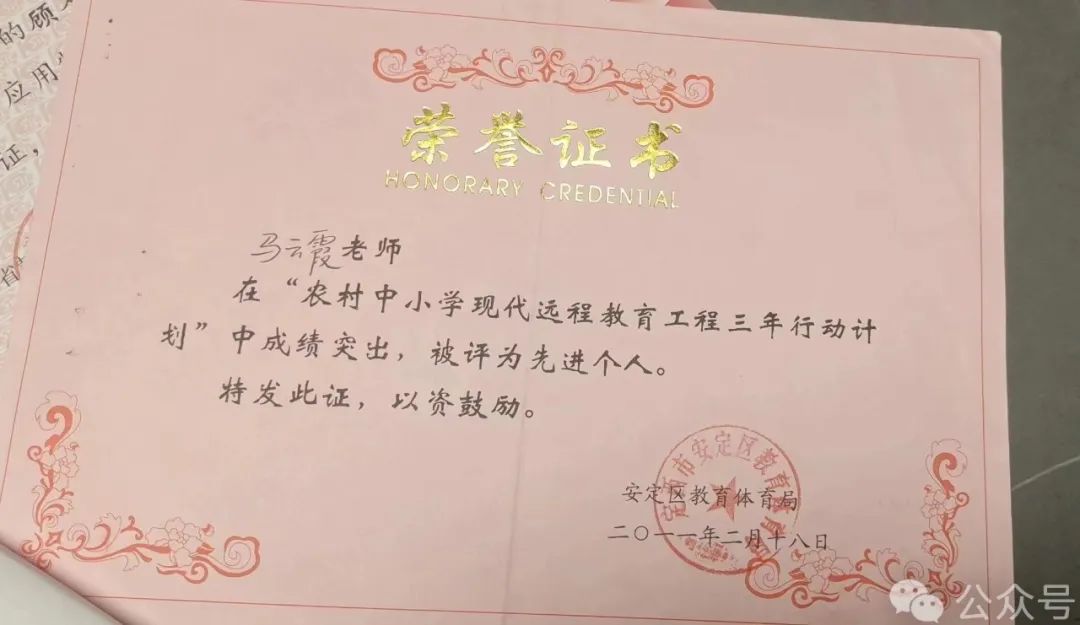 的顾
应用
证，
省
荣誉证书
HONORARY CREDENTIAL
马云霞老师
在“农村中小学现代远程教育工程三年行动计
划”中成绩突出，被评为先进个人。
特发此证，以资鼓励。
定西市安定区教育
安定区教育体育局
二〇一一年二月十八日
公众号